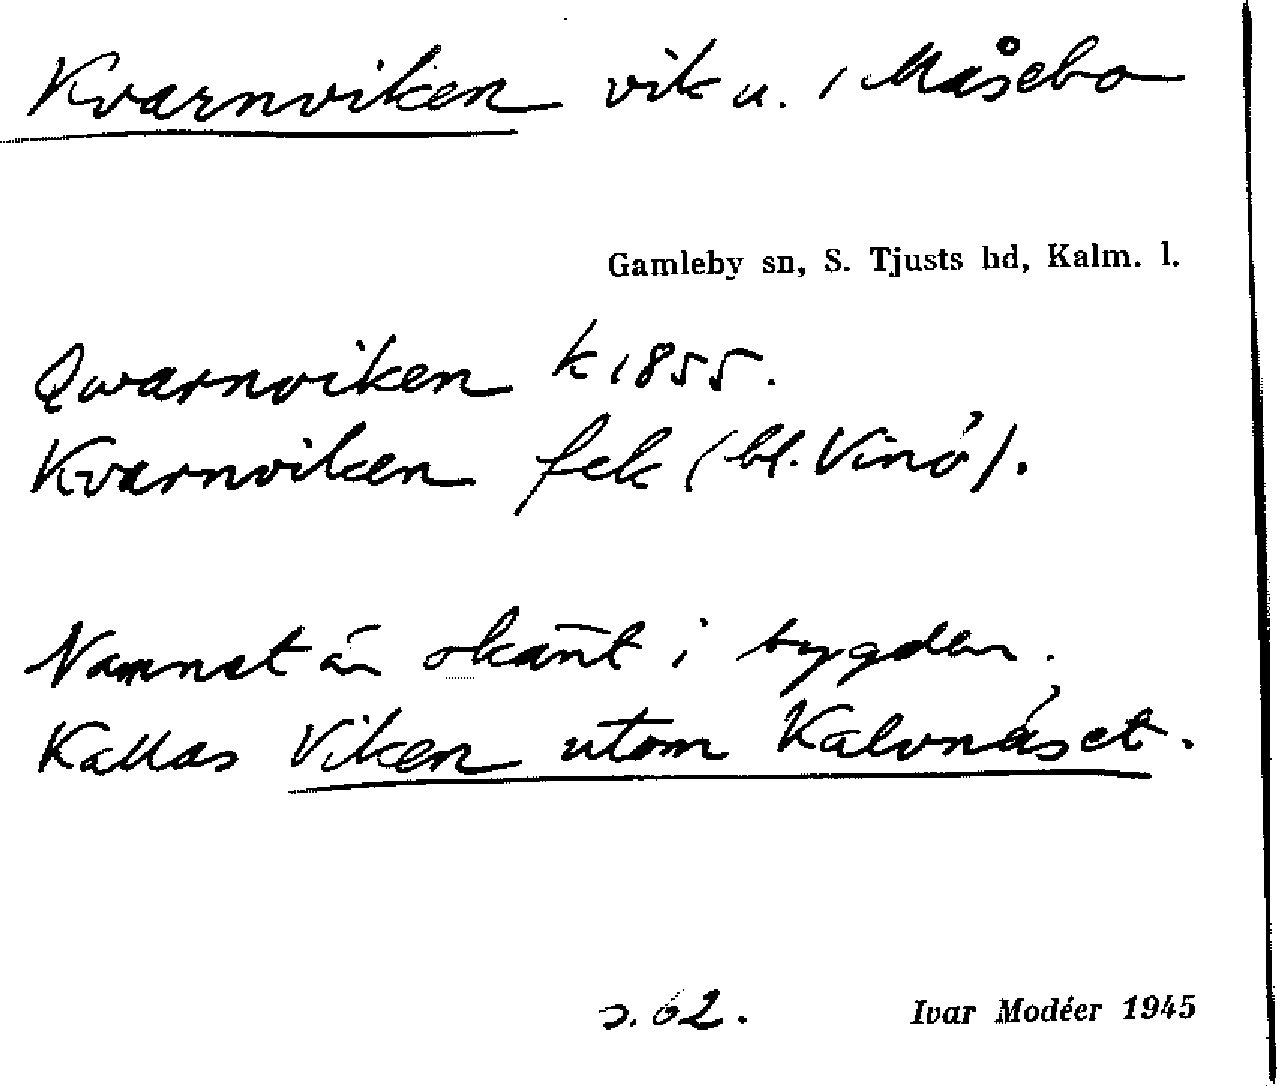 Kvarnviken vik u. / Måsebo
Gamleby sn, S. Tjusts hd, Kalm. l.
Qwarnviken k 1855.
Kvarnviken fek (bl. Vinö).
Namnet är okänt i bygden.
Kallas Viken utom Kalvnäset.
s. 62. Ivar Modéer 1945